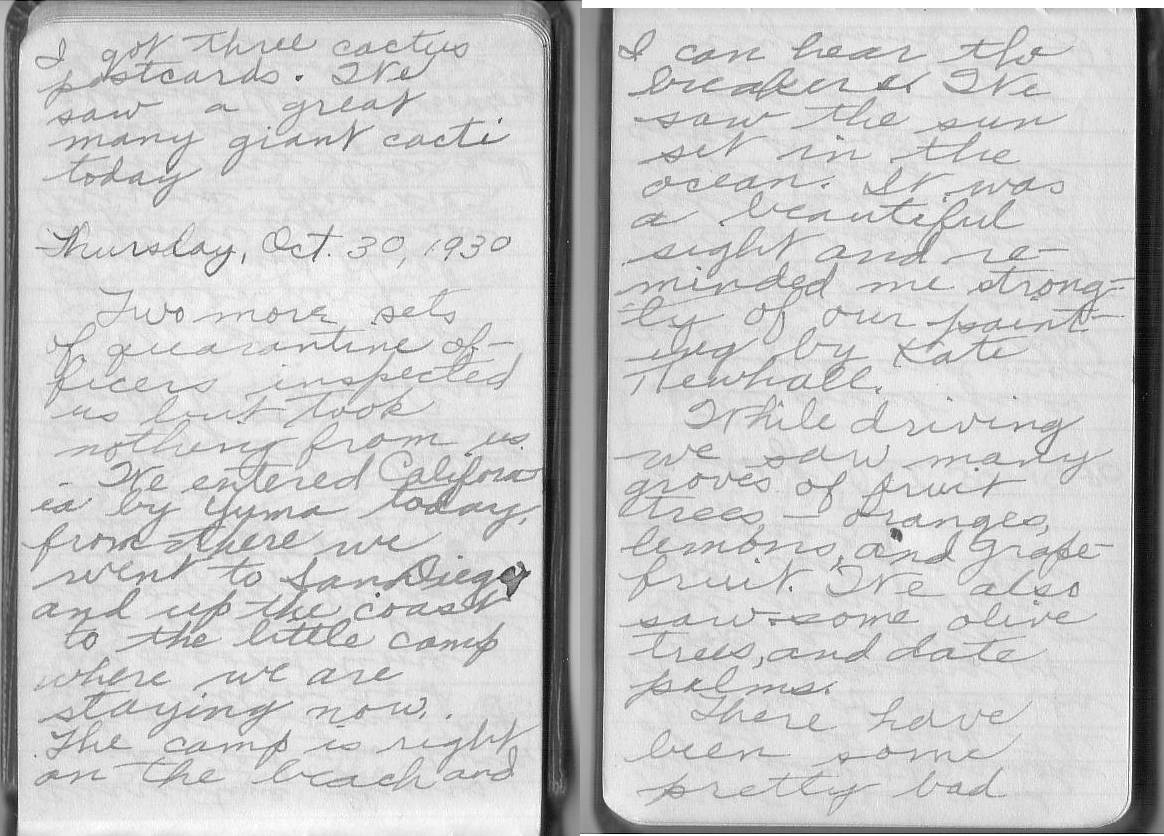 I got three cactus
postcards. We
saw a great
many giant cacti
today
Thursday, Oct. 30, 1930
Two more sets
of quarantine of-
ficers inspected
us but took
nothing from us.
We entered Californ
ia by Yuma today,
from there we
went to San Diego
and up the coast
to the little camp
where we are
staying now.
The camp is right
on the beach and
I can hear the
breakers. We
saw the sun
set in the
ocean. It was
a beautiful
sight and re-
minded me strong-
ly of our paint-
ing by Kate
Newhall.
While driving
we saw many
groves of fruit
trees, – oranges,
lemons, and grape-
fruit. We also
saw some olive
trees, and date
palms.
There have
been some
pretty bad